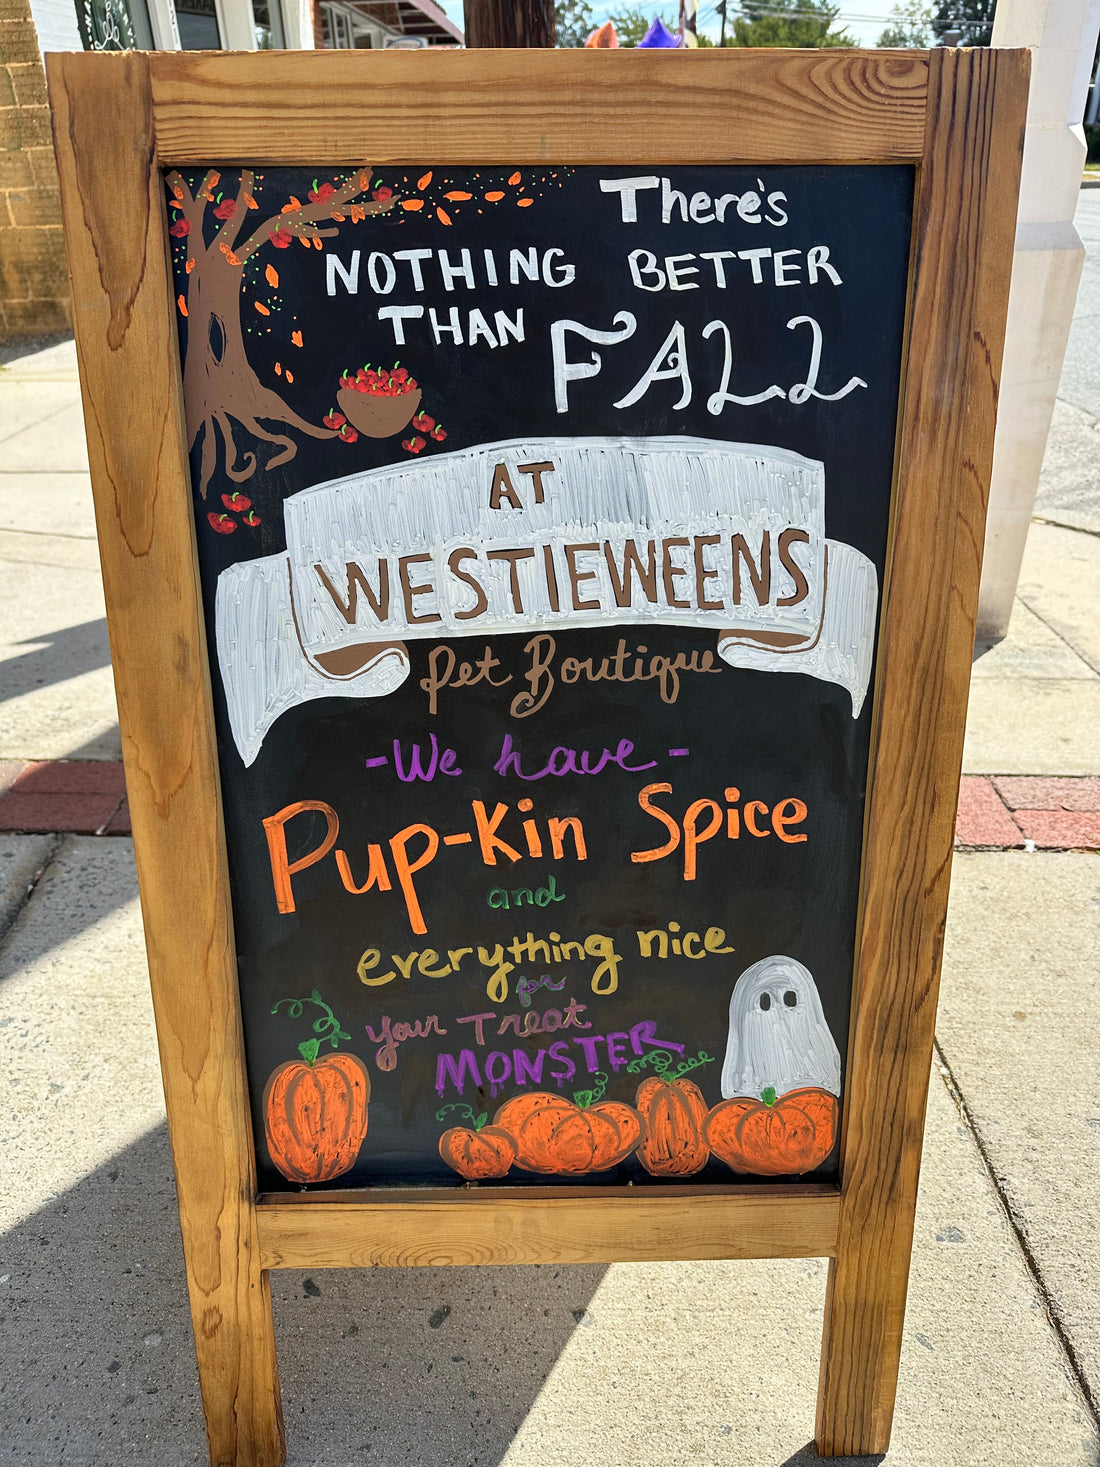 There's
NOTHING BETTER
THAN FALL
AT
WESTIEWEENS
Pet Boutique
-We have-
Pup-Kin Spice
and
everything nice
for
your Treat
MONSTER